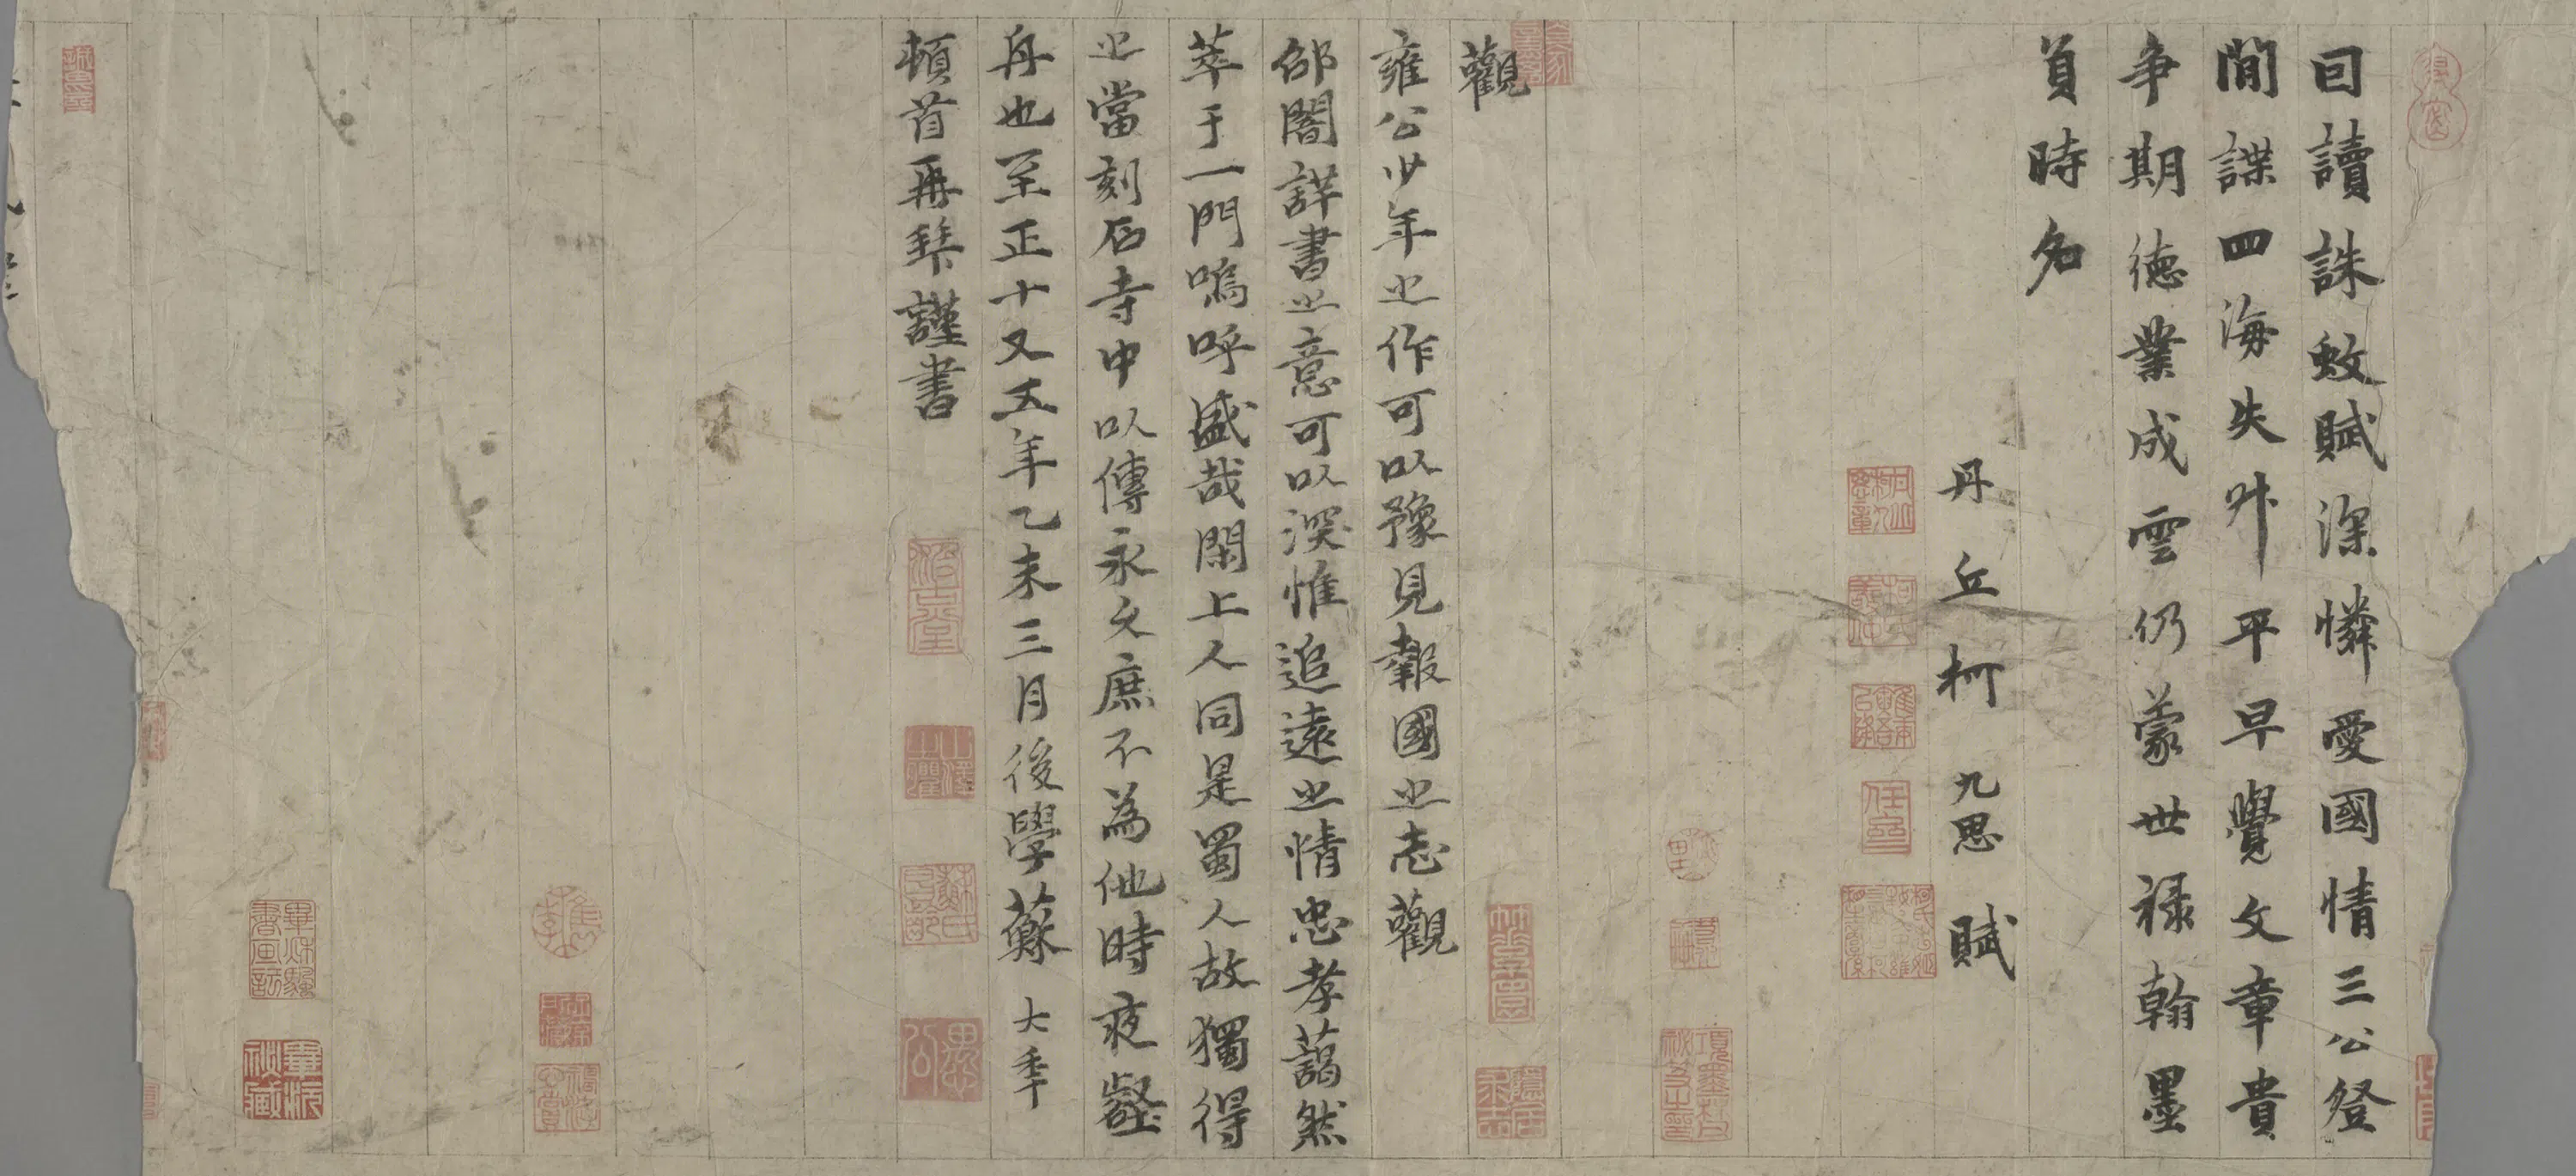 回讀誅蚊賦深憐愛國情三公登
閒諜四海失升平早覺文章貴
爭期德業成雲仍蒙世祿翰墨
負時名
丹丘柯九思賦
觀
雍公少年之作可以豫見報國之志觀
邰閣詳書之意可以深惟追遠之情忠孝藹然
萃于一門嗚呼盛哉閑上人同是蜀人故獨得
之當刻石寺中以傳永久庶不為他時夜壑
舟也至正十又五年乙未三月後學蘇大年
頓首再拜謹書